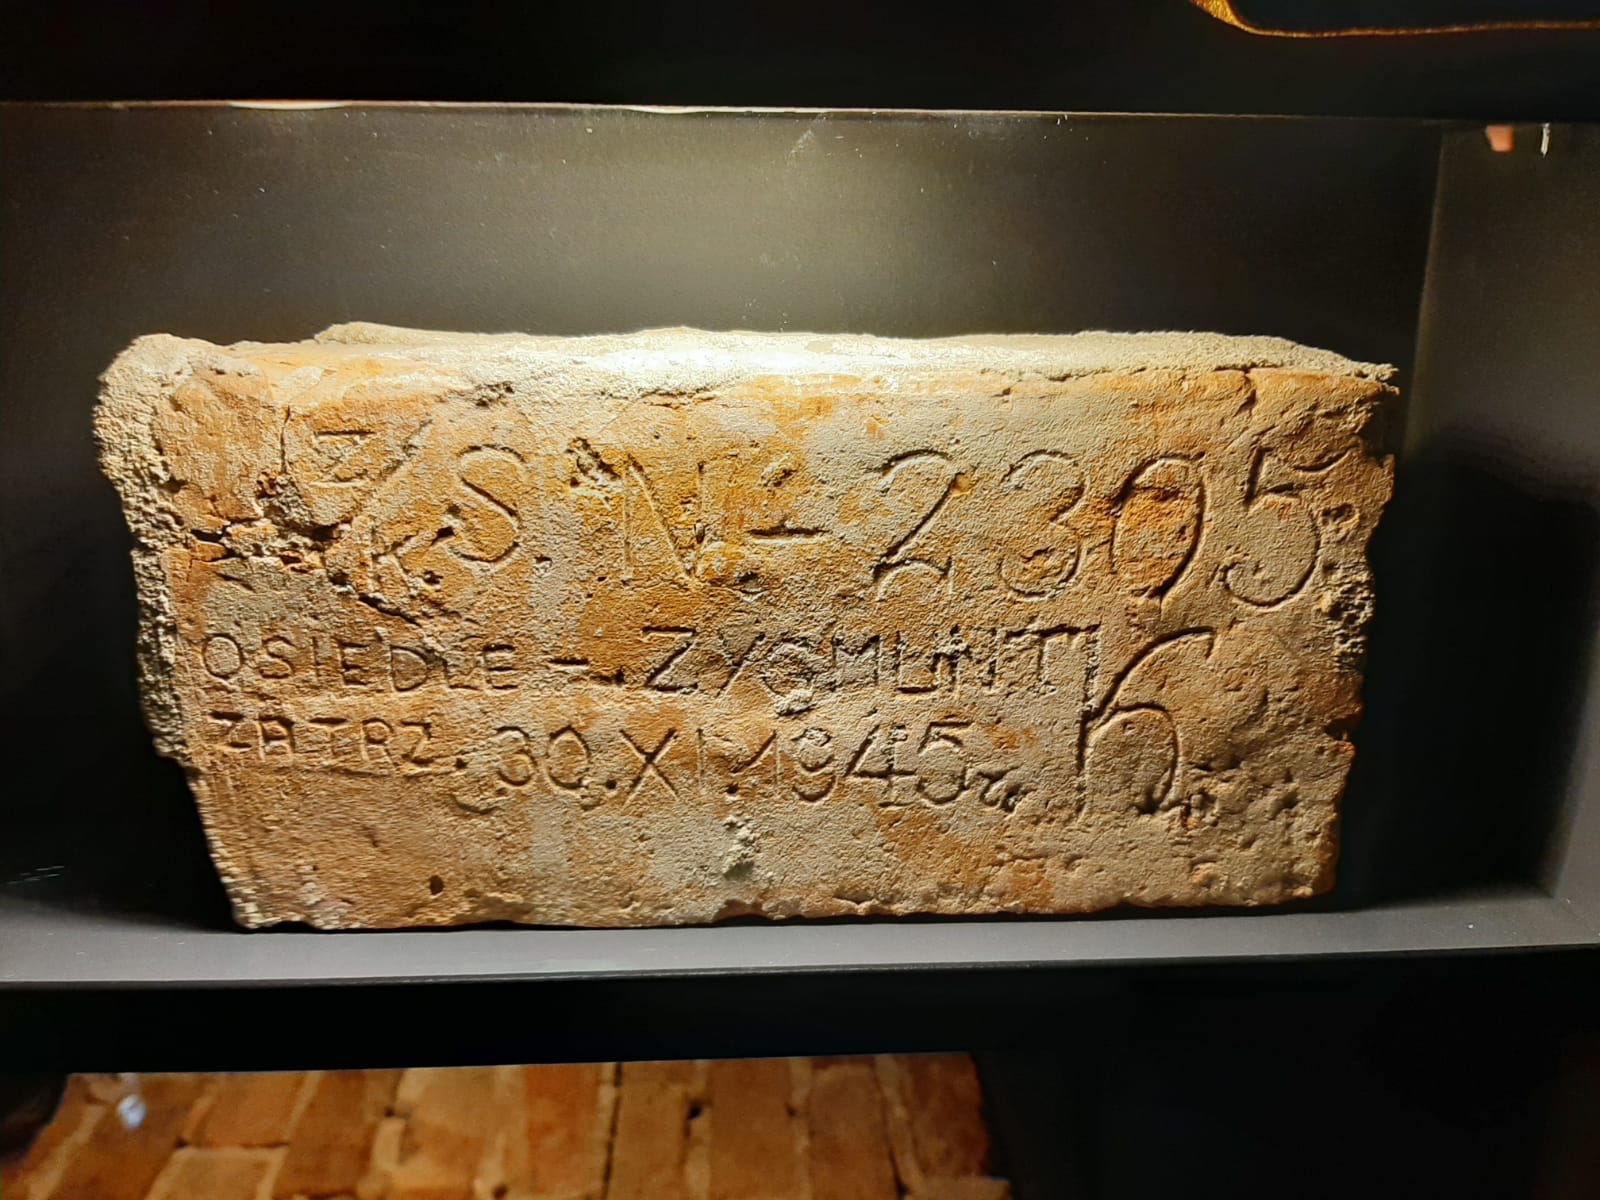 Z/K.S. N:- 2305
OSIEDLE - ZYGMUNT
ZATRZ. 30.XI.1945